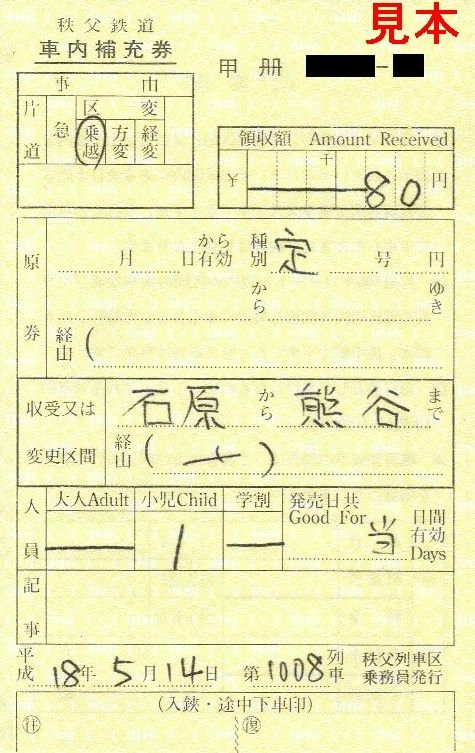 見本
秩父鉄道
車内補充券
甲 冊 -
事 由
片道 急 区変 乗越 方変 経変
領収額 Amount Received
千
¥ 80 円
原券
月 日から有効 種別 定 号 円
から ゆき
経由 (
収受又は変更区間
石原 から 熊谷 まで
経由 ( )
人員 大人Adult 小児Child 学割 発売日共 Good For 当 日間有効 Days
1
記事
平成 18年 5月 14日 第1008列車 秩父列車区乗務員発行
(入鋏・途中下車印)
往 復